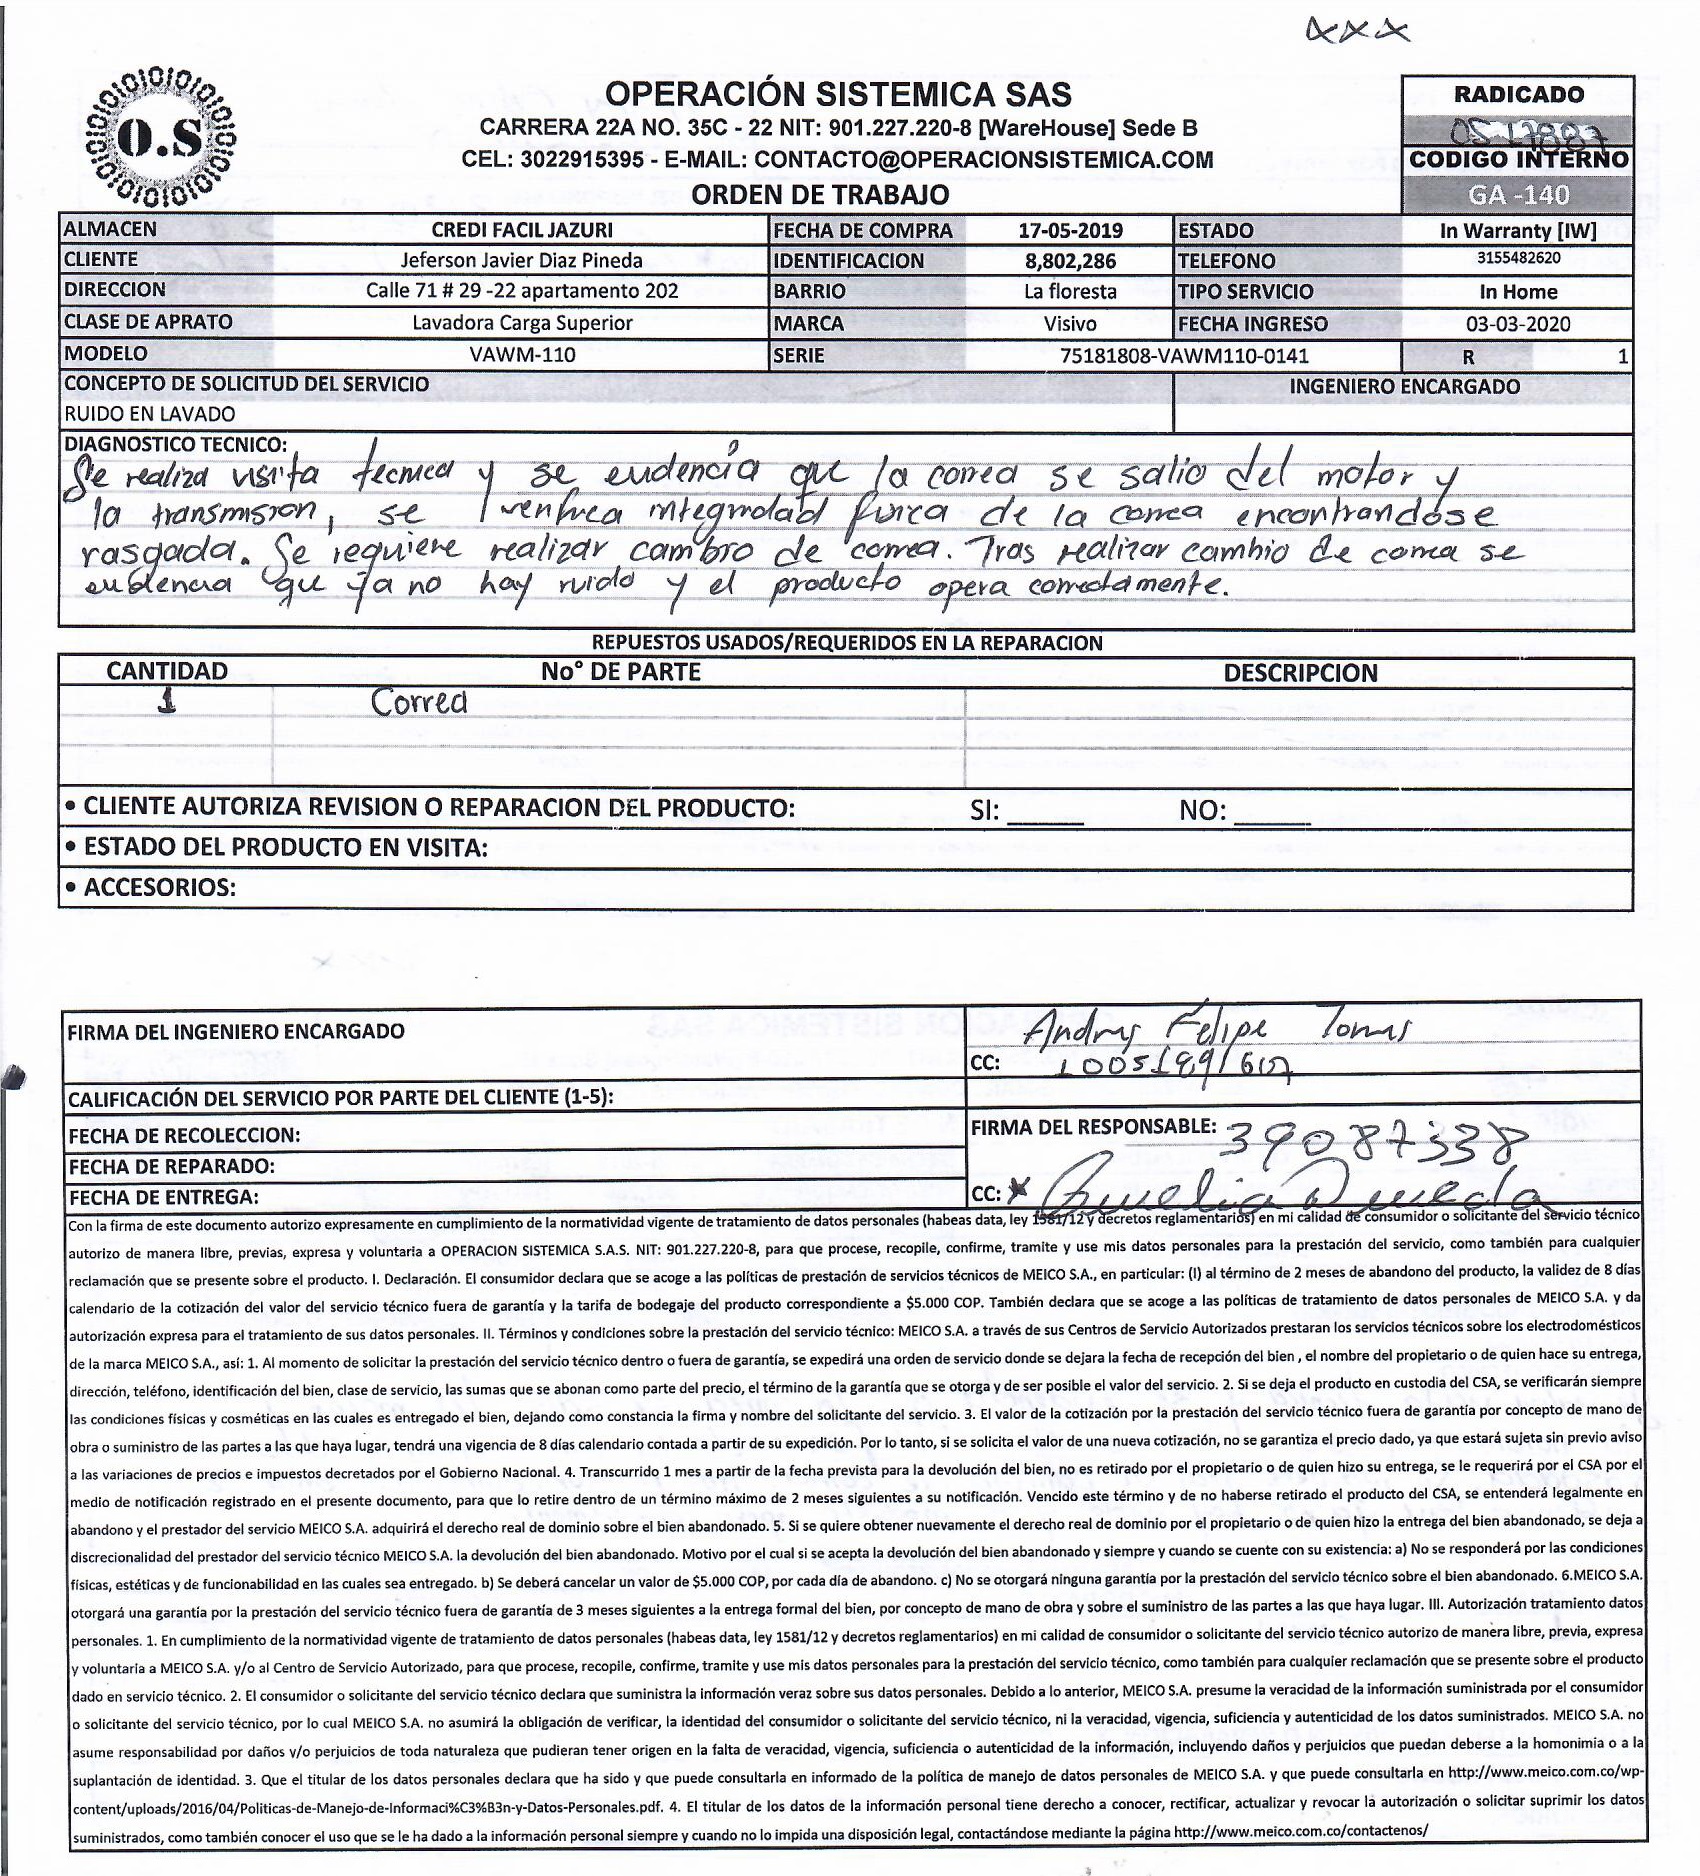 xxx
O.S
OPERACIÓN SISTEMICA SAS
CARRERA 22A NO. 35C - 22 NIT: 901.227.220-8 [WareHouse] Sede B
CEL: 3022915395 - E-MAIL: CONTACTO@OPERACIONSISTEMICA.COM
ORDEN DE TRABAJO
RADICADO
OS 17887
CODIGO INTERNO
GA -140
ALMACEN CREDI FACIL JAZURI FECHA DE COMPRA 17-05-2019 ESTADO In Warranty [IW]
CLIENTE Jeferson Javier Diaz Pineda IDENTIFICACION 8,802,286 TELEFONO 3155482620
DIRECCION Calle 71 # 29 -22 apartamento 202 BARRIO La floresta TIPO SERVICIO In Home
CLASE DE APRATO Lavadora Carga Superior MARCA Visivo FECHA INGRESO 03-03-2020
MODELO VAWM-110 SERIE 75181808-VAWM110-0141 R 1
CONCEPTO DE SOLICITUD DEL SERVICIO INGENIERO ENCARGADO
RUIDO EN LAVADO
DIAGNOSTICO TECNICO:
Se realiza visita tecnica y se eudencia que la correa se salio del motor y
la transmision, se verifica integridad fisica de la correa encontrandose
rasgada. Se requiere realizar cambio de correa. Tras realizar cambio de correa se
eudencia que ya no hay ruido y el producto opera correctamente.
REPUESTOS USADOS/REQUERIDOS EN LA REPARACION
CANTIDAD No° DE PARTE DESCRIPCION
1 Correa
• CLIENTE AUTORIZA REVISION O REPARACION DEL PRODUCTO: SI: ______ NO: ______
• ESTADO DEL PRODUCTO EN VISITA:
• ACCESORIOS:
FIRMA DEL INGENIERO ENCARGADO Andrs Felipe
CC:
CALIFICACIÓN DEL SERVICIO POR PARTE DEL CLIENTE (1-5):
FECHA DE RECOLECCION: FIRMA DEL RESPONSABLE: 39087338
FECHA DE REPARADO:
FECHA DE ENTREGA: CC:
Con la firma de este documento autorizo expresamente en cumplimiento de la normatividad vigente de tratamiento de datos personales (habeas data, ley 1581/12 y decretos reglamentarios) en mi calidad de consumidor o solicitante del servicio técnico
autorizo de manera libre, previas, expresa y voluntaria a OPERACION SISTEMICA S.A.S. NIT: 901.227.220-8, para que procese, recopile, confirme, tramite y use mis datos personales para la prestación del servicio, como también para cualquier
reclamación que se presente sobre el producto. I. Declaración. El consumidor declara que se acoge a las políticas de prestación de servicios técnicos de MEICO S.A., en particular: (I) al término de 2 meses de abandono del producto, la validez de 8 días
calendario de la cotización del valor del servicio técnico fuera de garantía y la tarifa de bodegaje del producto correspondiente a $5.000 COP. También declara que se acoge a las políticas de tratamiento de datos personales de MEICO S.A. y da
autorización expresa para el tratamiento de sus datos personales. II. Términos y condiciones sobre la prestación del servicio técnico: MEICO S.A. a través de sus Centros de Servicio Autorizados prestaran los servicios técnicos sobre los electrodomésticos
de la marca MEICO S.A., así: 1. Al momento de solicitar la prestación del servicio técnico dentro o fuera de garantía, se expedirá una orden de servicio donde se dejara la fecha de recepción del bien , el nombre del propietario o de quien hace su entrega,
dirección, teléfono, identificación del bien, clase de servicio, las sumas que se abonan como parte del precio, el término de la garantía que se otorga y de ser posible el valor del servicio. 2. Si se deja el producto en custodia del CSA, se verificarán siempre
las condiciones físicas y cosméticas en las cuales es entregado el bien, dejando como constancia la firma y nombre del solicitante del servicio. 3. El valor de la cotización por la prestación del servicio técnico fuera de garantía por concepto de mano de
obra o suministro de las partes a las que haya lugar, tendrá una vigencia de 8 días calendario contada a partir de su expedición. Por lo tanto, si se solicita el valor de una nueva cotización, no se garantiza el precio dado, ya que estará sujeta sin previo aviso
a las variaciones de precios e impuestos decretados por el Gobierno Nacional. 4. Transcurrido 1 mes a partir de la fecha prevista para la devolución del bien, no es retirado por el propietario o de quien hizo su entrega, se le requerirá por el CSA por el
medio de notificación registrado en el presente documento, para que lo retire dentro de un término máximo de 2 meses siguientes a su notificación. Vencido este término y de no haberse retirado el producto del CSA, se entenderá legalmente en
abandono y el prestador del servicio MEICO S.A. adquirirá el derecho real de dominio sobre el bien abandonado. 5. Si se quiere obtener nuevamente el derecho real de dominio por el propietario o de quien hizo la entrega del bien abandonado, se deja a
discrecionalidad del prestador del servicio técnico MEICO S.A. la devolución del bien abandonado. Motivo por el cual si se acepta la devolución del bien abandonado y siempre y cuando se cuente con su existencia: a) No se responderá por las condiciones
físicas, estéticas y de funcionabilidad en las cuales sea entregado. b) Se deberá cancelar un valor de $5.000 COP, por cada día de abandono. c) No se otorgará ninguna garantía por la prestación del servicio técnico sobre el bien abandonado. 6.MEICO S.A.
otorgará una garantía por la prestación del servicio técnico fuera de garantía de 3 meses siguientes a la entrega formal del bien, por concepto de mano de obra y sobre el suministro de las partes a las que haya lugar. III. Autorización tratamiento datos
personales. 1. En cumplimiento de la normatividad vigente de tratamiento de datos personales (habeas data, ley 1581/12 y decretos reglamentarios) en mi calidad de consumidor o solicitante del servicio técnico autorizo de manera libre, previa, expresa
y voluntaria a MEICO S.A. y/o al Centro de Servicio Autorizado, para que procese, recopile, confirme, tramite y use mis datos personales para la prestación del servicio técnico, como también para cualquier reclamación que se presente sobre el producto
dado en servicio técnico. 2. El consumidor o solicitante del servicio técnico declara que suministra la información veraz sobre sus datos personales. Debido a lo anterior, MEICO S.A. presume la veracidad de la información suministrada por el consumidor
o solicitante del servicio técnico, por lo cual MEICO S.A. no asumirá la obligación de verificar, la identidad del consumidor o solicitante del servicio técnico, ni la veracidad, vigencia, suficiencia y autenticidad de los datos suministrados. MEICO S.A. no
asume responsabilidad por daños y/o perjuicios de toda naturaleza que pudieran tener origen en la falta de veracidad, vigencia, suficiencia o autenticidad de la información, incluyendo daños y perjuicios que puedan deberse a la homonimia o a la
suplantación de identidad. 3. Que el titular de los datos personales declara que ha sido y que puede consultarla en informado de la política de manejo de datos personales de MEICO S.A. y que puede consultarla en http://www.meico.com.co/wp-
content/uploads/2016/04/Politicas-de-Manejo-de-Informaci%C3%B3n-y-Datos-Personales.pdf. 4. El titular de los datos de la información personal tiene derecho a conocer, rectificar, actualizar y revocar la autorización o solicitar suprimir los datos
suministrados, como también conocer el uso que se le ha dado a la información personal siempre y cuando no lo impida una disposición legal, contactándose mediante la página http://www.meico.com.co/contactenos/